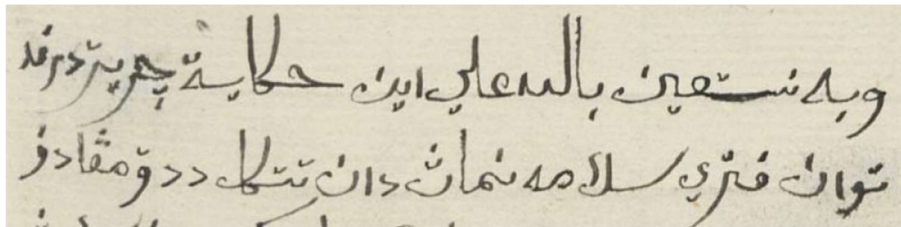 وبه نستعين بالله علي اين حكاية چريتر درفد
توان فتري سلامه نمان دان تتكل ددوڠ مڤادف